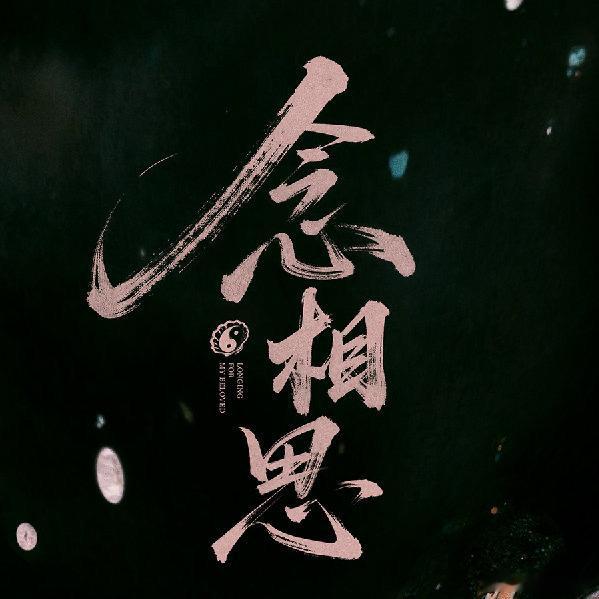 念相思
LONGING
FOR
MY BELOVED